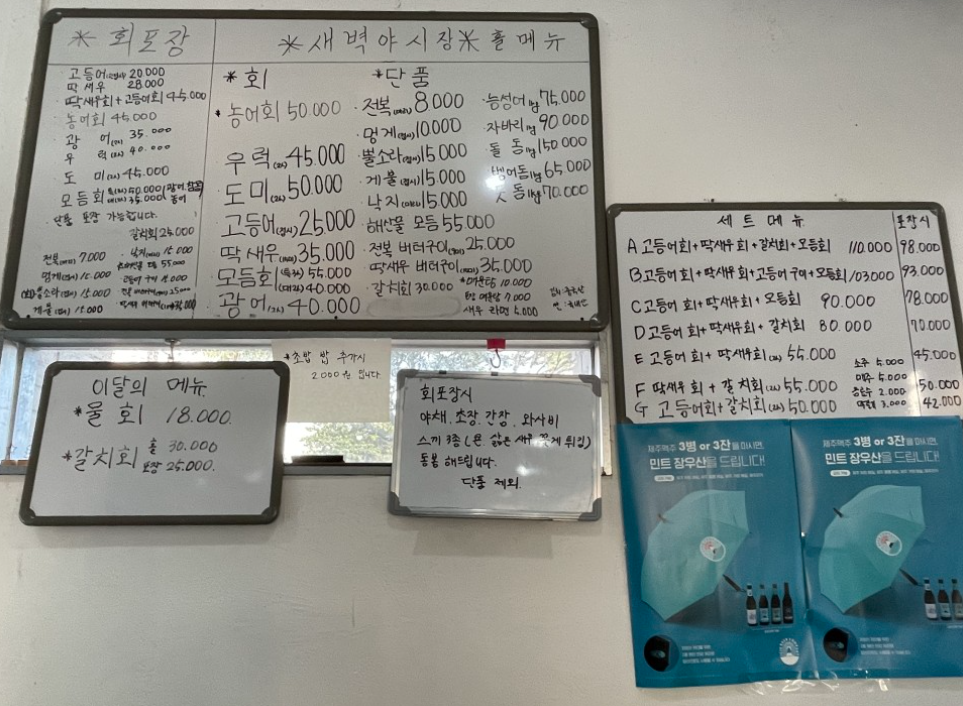 * 회포장
고등어 20.000
딱새우 28.000
딱새우회+고등어회 45.000
농어회 45.000
광어 35.000
우럭 40.000
도미 45.000
모듬회
단품 포장 가능합니다.
갈치회 25.000
전복 7.000
낙지 15.000
멍게(접시) 10.000
뿔소라(접시) 15.000
게불(접시) 15.000
* 새벽야시장 * 홀메뉴
* 회
* 농어회 50.000
우럭 45.000
도미 50.000
고등어(접시) 25.000
딱새우 35.000
모듬회 55.000
40.000
광어 40.000
* 단품
전복 8.000
멍게(접시) 10.000
뿔소라(접시) 15.000
게불(접시) 15.000
낙지 15.000
해산물 모듬 55.000
전복 버터구이 25.000
딱새우 버터구이 35.000
갈치회 30.000
*매운탕 10.000
매운탕 7.000
새우 라면 5.000
능성어 1kg 75.000
자바리 1kg 90.000
돌돔 1kg 150.000
벵어돔 1kg 65.000
돔 1kg 70.000
* 초밥 밥 추가시
2.000원 입니다
이달의 메뉴
* 물회 18.000.
* 갈치회 홀 30.000
포장 25.000.
회포장시
야채, 초장, 간장, 와사비
스끼 3종 (콘 삶은 새우 꽃게 튀김)
동봉 해드립니다.
단품 제외.
세트 메뉴
포장시
A 고등어회+딱새우회+갈치회+모듬회 110.000 98.000
B 고등어회+딱새우회+고등어구이+모듬회 103.000 93.000
C 고등어회+딱새우회+모듬회 90.000 78.000
D 고등어회+딱새우회+갈치회 80.000 70.000
E 고등어회+딱새우회 55.000 45.000
F 딱새우회+갈치회 55.000 50.000
G 고등어회+갈치회 50.000 42.000
소주 5.000
맥주 5.000
음료수 2.000
3.000
제주맥주 3병 or 3잔을 마시면,
민트 장우산을 드립니다!
제주맥주 3병 or 3잔을 마시면,
민트 장우산을 드립니다!